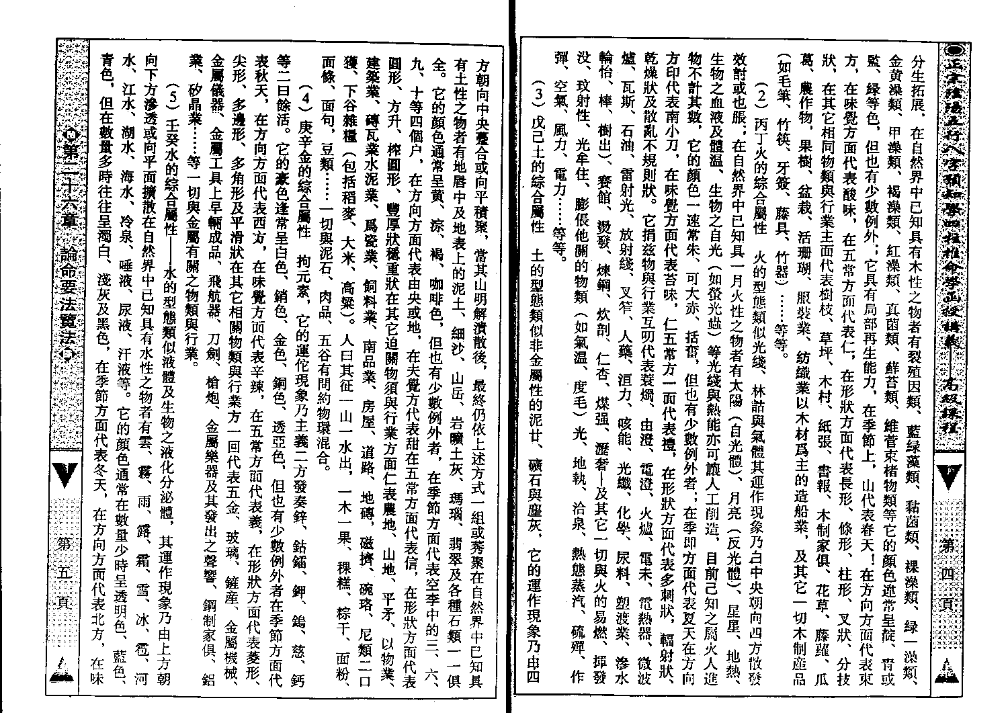 正宗陰陽五行八字預知學四柱推命學正授講義 高級課程
第四頁
分生拓展、在自然界中已知具有木性之物者有裂殖因類、藍綠藻類、黏菌類、裸藻類、綠一藻類、
金黃藻類、甲藻類、褐藻類、紅藻類、真菌類、蘚苔類、維菅束楮物類等它的顏色通常呈靛、青或
監、綠等色,但也有少數例外;它具有局部再生能力,在季節上,山代表春天!在方向方面代表東
方,在味覺方面代表酸味,在五常方面代表仁,在形狀方面代表長形、條形、柱形、叉狀、分技
狀,在其它相同物類與行業主面代表樹枝、草坪、木村、紙張、書報、木制家俱、花草、藤蘿、瓜
蔓、農作物,果樹、盆栽、活珊瑚、服裝業、紡織業以木材爲主的造船業,及其它一切木制產品
(如毛筆、竹筷、牙簽、藤具、竹器)……等等。
(2)丙丁火的綜合屬性 火的型態類似光綫、林詰與氣體其運作現象乃曰中央朝向四方散發
效討或也脹;在自然界中已知具一月火性之物者有太陽(自光體)、月亮(反光體)、星星、地熱、
生物之血液及體溫、生物之自光(如螢光蟲)等光綫與熱能亦可讓人工創造,目前己知之屬火人進
物不計其數,它的顏色一速常朱、可大赤、括奮,但也有少數例外者;在季即方面代表夏天在方向
方印代表南小刀,在味嗅方面代表苔味,仁五常方一面代表禮,在形狀方面代表多刺狀,輻射狀,
乾燥狀及散亂不規則狀。它捐兹物與行業互叨代表蓑燭、由澄、電澄、火爐、電未、電熱器、微波
爐、瓦斯、石油、雷射光、放射綫、叉笮、人藥、洹力、咳能、光纖、化學、尿料、塑渡業、滲水
輪怡、棒、樹出)、赛館、燙發、煉鋼、炊剖、仁杏、煤强、瀝耆—及其它一切與火的易燃、揮發
没、玟射性、光牟住、膨侲他關的物類(如氣溫、度毛)光、地執、洽泉、熱態蒸汽、硫殫、作
彈、空氣、風力、電力……等等。
(3)戊己土的綜合屬性 土的型態類似非金屬性的泥廿、礦石與塵灰,它的運作現象乃由四
方朝向中央蔓合或向平積聚,常其山明解潰散後,最終仍依上述方式一組或莠聚在自然界中已知具
有土性之物者有地唇中及地表上的泥土、細沙、山岳、岩曠土灰、瑪瑙、翡翠及各種石類一一俱
全。它的顏色通常呈黄、淙、褐、咖啡色,但也有少數例外者,在季節方面代表空李中的三、六、
九、十等四個戶,在方向方面代表由央或地,在夫覺方代表甜在在五常方面代表信,在形狀方面代表
圓形、方升、榨圓形、豐厚狀穩重狀在其它迫關物須與行業方面仁表農地、山地、平矛、以物業、
建築業、磚瓦業水泥業、爲瓷業、飼料業、南品業、房屋、道路、地磚,磁擠、碗珞、尼類二口
獲、下谷雜糧(包括稻麥、大米、高粱)。人日其征一山一水出,一木一果、粿糕、粽干、面粉、
面條、面句,豆類……一切與泥石、肉品、五谷有問約物環混合。
(4)庚辛金的綜合屬性 拘元素,它的運佗現象乃主義二方發奏鋅、鈷錨、鉀、鴿、慈、鈣
等二日餘活。它的豪色逢常呈白色、銷色、金色、銅色、透亞色,但也有少數例外者在季節方面代
表秋天,在方向方面代表西方,在味覺方面代表辛辣,在五常方面代表義,在形狀方面代表菱形、
尖形、多邊形、多角形及平滑狀在其它相關物類與行業方一回代表五金、玻璃、鏟産、金屬機械、
金屬儀器、金屬工具上早輛成品、飛航器、刀劍、槍炮、金屬樂器及其發出之聲響、鋼制家俱、鋁
業、矽晶業……等一切與金屬有關之物類與行業。
(5)壬癸水的綜合屬性——水的型態類似液體及生物之液化分泌體,其運作現象乃由上方朝
向下方滲透或向平面擴散在自然界中已知具有水性之物者有雲、霧、雨、露、霜、雪、冰、雹、河
水、江水、湖水、海水、冷泉、唾液、尿液、汗液等。它的顏色通常在數量少時呈透明色、藍色、
青色,但在數量多時往往呈濁白、淺灰及黑色,在季節方面代表冬天,在方向方面代表北方,在味
第二十六章 論命要法覽法
第五頁